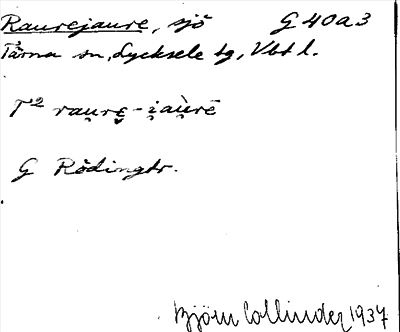 Raurejaure, sjö G 40a3
Tärna sn, Lycksele tg, Vbt l.
T² rau̯rę - i̯au̯rē
G Rödingtr.
Björn Collinder 1937